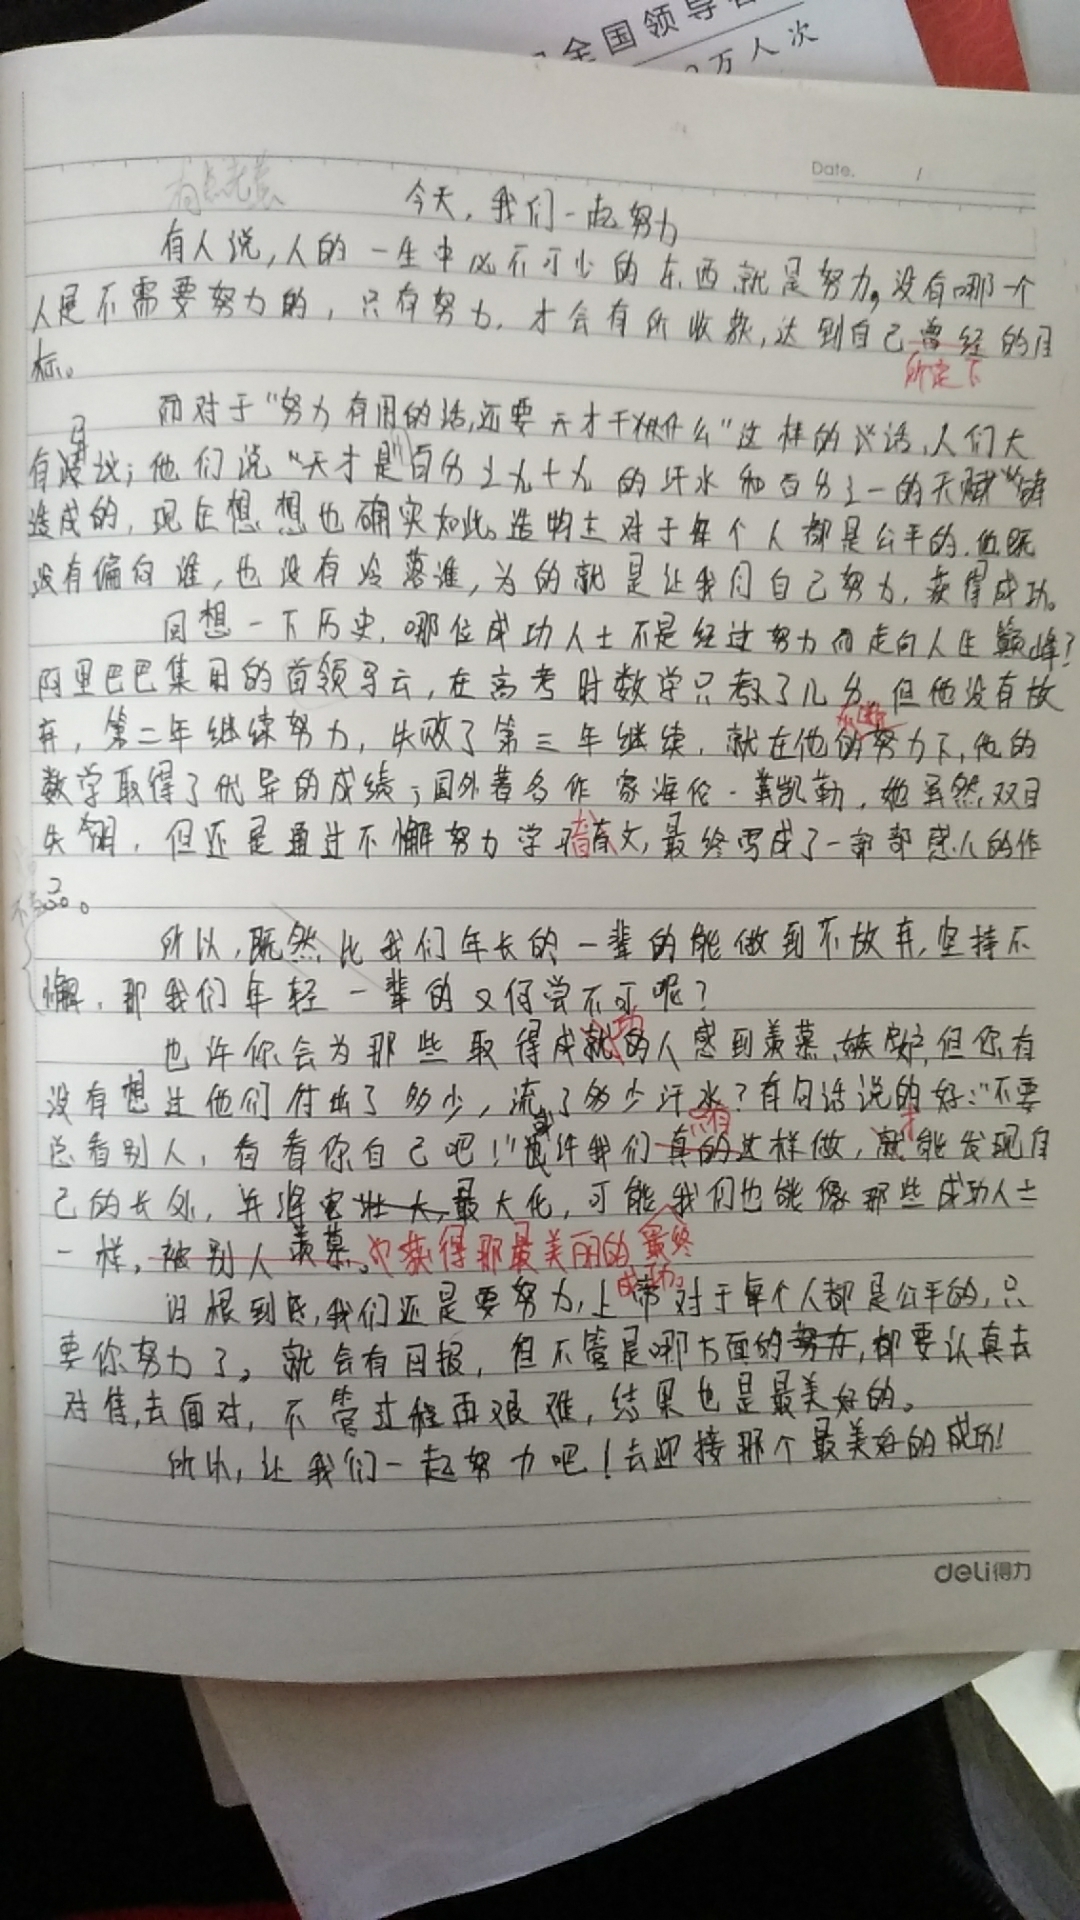 全国领导者
万人次
Date.
今天，我们一起努力
有人说，人的一生中必不可少的东西就是努力。没有哪一个
人是不需要努力的，只有努力，才会有所收款，达到自己曾经的目
所定下
标。
而对于“努力有用的话，还要天才干什么”这样的说话，人们大
有
议；他们说“天才是”百分之九十九的汗水和百分之一的天赋“铸
造成的，现在想想也确实如此。造物主对于每个人都是公平的，他既
没有偏向谁，也没有冷落谁，为的就是让我们自己努力，获得成功。
回想一下历史，哪位成功人士不是经过努力而走向人生巅峰？
阿里巴巴集团的首领马云，在高考时数学只考了几分，但他没有放
不断
弃，第二年继续努力，失败了第三年继续，就在他的努力下，他的
数学取得了优异的成绩；国外著名作家海伦·凯勒，她虽然双目
失明，但还是通过不懈努力学习盲文，最终写成了一部部感人的作
品。
所以，既然比我们年长的一辈的能做到不放弃，坚持不
懈，那我们年轻一辈的又何尝不可呢？
功
也许你会为那些取得成就的人感到羡慕、嫉妒，但你有
没有想过他们付出了多少，流了多少汗水？有句话说的好：“不要
或 只有 才
总看别人，看看你自己吧！”也许我们真的这样做，就能发现自
己的长处，并将它壮大，最大化，可能我们也能像那些成功人士
一样，被别人羡慕。也获得那最美丽的最终
成功。
归根到底，我们还是要努力，上帝对于每个人都是公平的，只
要你努力了，就会有回报，但不管是哪方面的努力，都要认真去
对待，去面对，不管过程再艰难，结果也是最美好的。
所以，让我们一起努力吧！去迎接那个最美好的成功！
deli得力